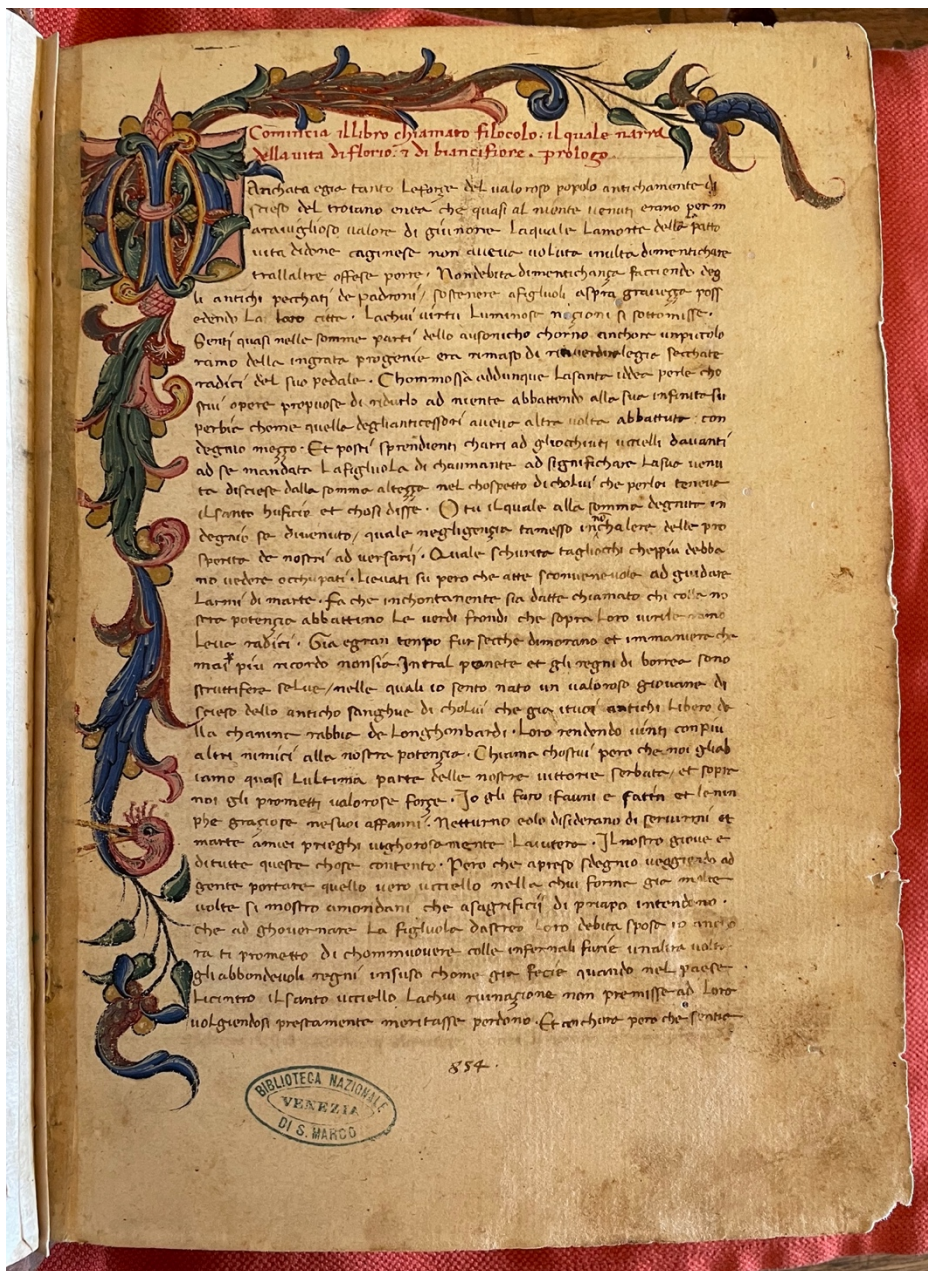 1
Comincia illibro chiamato filocolo: il quale narra
della vita di florio: 7 di biancifiore. prologo.
Anchata egia tanto Leforze del valoroso popolo antichamente di
scieso del troiano enea che quasi al niente venuti erano per m
araviglioso valore di giunone Laquale Lamorte della patto
vita didone caginese non aveva voluta inulta dimentichare
trallaltre offese porre. Nondebita dimentichanza faccendo deg
li antichi pecchati de padroni / sostenere afigluoli aspra gravezza poss
edendo La loro citta. Lachui virtu Luminose nazioni si sottomisse.
Senti quasi nelle somme parti dello ausonicho chorno anchora unpicolo
ramo della ingrata progenie era rimaso di rinverdire legia secchate
radici del suo pedale. Chommossa addunque Lasanta iddea perle cho
stui opere propuose di ridurlo ad niente abbattendo alla sua infinita su
perbia chome quella deglianticessori aveva altra volta abbattuta con
degnio mezzo. Et posti sprendienti charri ad gliocchiuti uccielli davanti
ad se mandata Lafigluola di chaumante ad significhare Lasua venu
ta disciese dalla somma altezza nel chospetto di cholui che perlei teneva
ilsanto huficio et chosi disse. O tu ilquale alla somma degnita in
degnio se divenuto / quale negligenzia tamesso in no chalere delle pro
sperita de nostri ad versarii. Quale schurita tagliocchi cheppiu debba
no vedere occhupati. Lievati su pero che atte sconvenevole ad guidare
Larmi di marte. Fa che inchontanente sia datte chiamato chi colla no
stra potenzia abbattino Le verdi frondi che sopra Loro
Leva radici. Gia egran tempo fur secche dimorano et immaniera che
mai piu ricordo nonsia. Intral panete et gli regni di borrea sono
fruttifere selve / nelle quali io sento nato un valoroso giovane di
scieso dello anticho sanghue di cholui che gia ituoi antichi Libero de
lla chanina rabbia de Longhonbardi. Loro rendendo vinti conpiu
altri nimici alla nostra potenzia. Chiama chostui pero che noi gliab
iamo quasi Lultima parte delle nostre vittorie serbata / et sopra
noi gli prometti valorose forze. Io gli faro ifauni e satiri et lenin
phe graziose nesuoi affanni. Nettuno eolo disiderano di servirmi et
marte amiei prieghi vighorosamente Laiutera. Il nostro giove e
ditutte queste chose contento. Pero che apreso sdegnio veggiendo ad
gente portare quello vero ucciello nella chui forma gia molte
volte si mostro amondani che asagrificii di priapo intendono.
che ad ghovernare La figluola dastreo Loro debita sposa io ancho
ra ti prometto di chommuovere colle infernali furie unaltra volta
gli abbondevoli regni insuso chome gia fecie quando nel paese
Licintro ilsanto ucciello Lachui ruinazione non premisse ad Loro
volgiendosi prestamente meritasse perdono. Et anchora pero che sentia
854.
BIBLIOTECA NAZIONALE
VENEZIA
DI S. MARCO